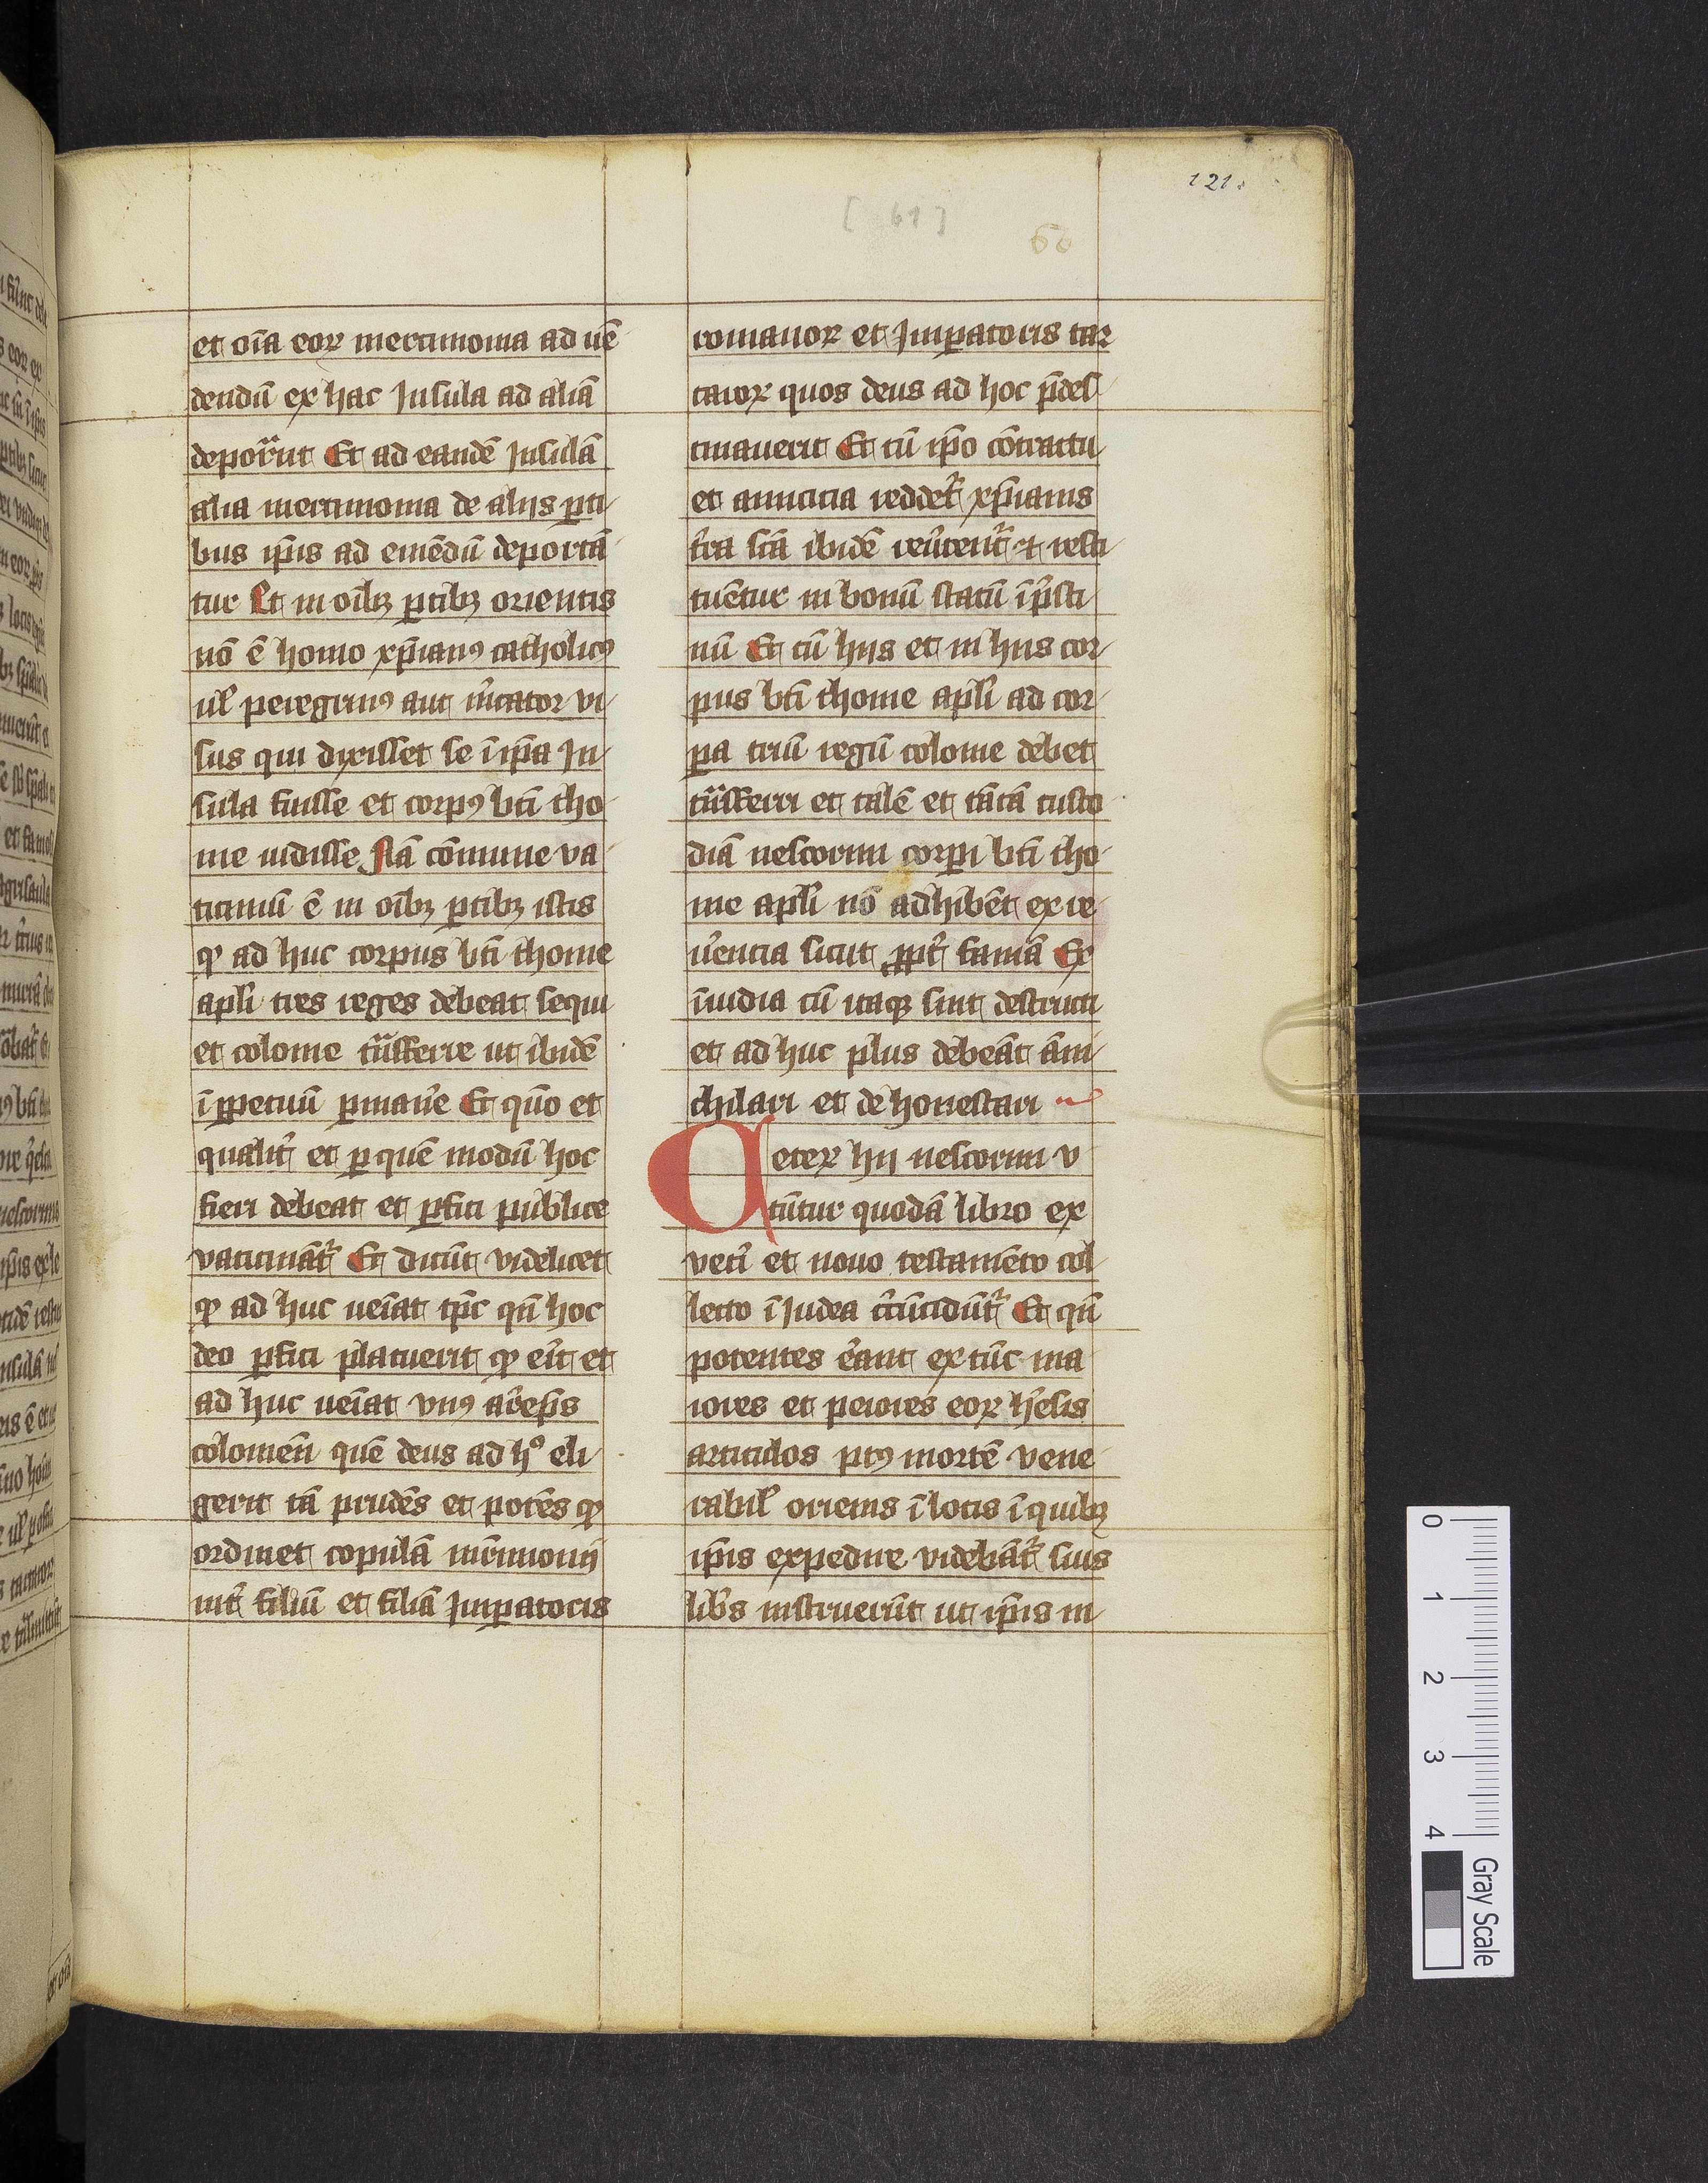 121.
[ 61 ]
60
et oīa eoꝝ mercimonia ad uē
dendū ex hac Insula ad aliā
deporʳnt Et ad eandē Insulā
alia mercimonia de alijs ꝑti
bus ip̄is ad emēdū deportā
tur Et in oībꝫ ꝑtibꝫ orientis
nō ē homo xp̄ianꝰ catholicꝰ
ul̄ peregrinꝰ aut m̄cator vi
sus qui dixisset se ī ip̄a In
sula fuisse et corpꝰ bt̄i tho
me uidisse Nā cōmune va
ticiniū ē in oībꝫ ꝑtibꝫ istis
ꝙ ad huc corpus bt̄i thome
apl̄i tres reges debeat sequi
et colonie trāsferre ut ibidē
ī ꝑpetuū ꝑmaneͥ Et quō et
qualit̄ et ꝑ quē modū hoc
fieri debeat et ꝑfici publice
vaticinat̄ Et dicūt videlicet
ꝙ ad huc ueīat tp̄c qn̄ hoc
deo ꝑfici placuerit ꝙ er̄it et
ad huc ueīat vnꝰ ar̄ep̄s
colonien̄ quē deus ad hᵒ eli
gerit tā prudēs et potēs ꝙ
ordinet copulā mr̄imonij
int̄ filiū et filiā Imꝑatoris
romanoꝝ et Imꝑatoris tar
taroꝝ quos deus ad hoc p̄des
tinauerit Et cū ip̄o cōtractu
et amicicia reddet̄ xp̄ianis
t̄ra sc̄a ibidē reūtent̄ ⁊ resti
tuētur in bonū statū ī p̄sti
nū Et cū hijs et in hiis cor
pus bt̄i thome apl̄i ad cor
ꝑa triū regū colonie debet
trāsferri et talē et tātā custo
diā nescorini corꝑi bt̄i tho
me apl̄i nō adhibēt ex re
uēncia sicut ꝓpt̄ famā Ex
īuidia cū itaqꝫ sint destructi
et ad huc plus debeāt āni
chilari et de honestari
Ceteꝝ hij nescorini v
tūtur quodā libro ex
vetī et nouo testamēto col
lecto ī Iudea c̄cūcidūt̄ Et qn̄
potentes er̄ant ex tūc ma
iores et peiores eoꝝ h̄esis
articulos pꝰ mortē vene
rabil̄ oriens ī locis ī quibꝫ
ip̄is expedire videbāt̄ suis
lib̄s instruerūt ut ip̄is in
0
1
2
3
4
Gray Scale